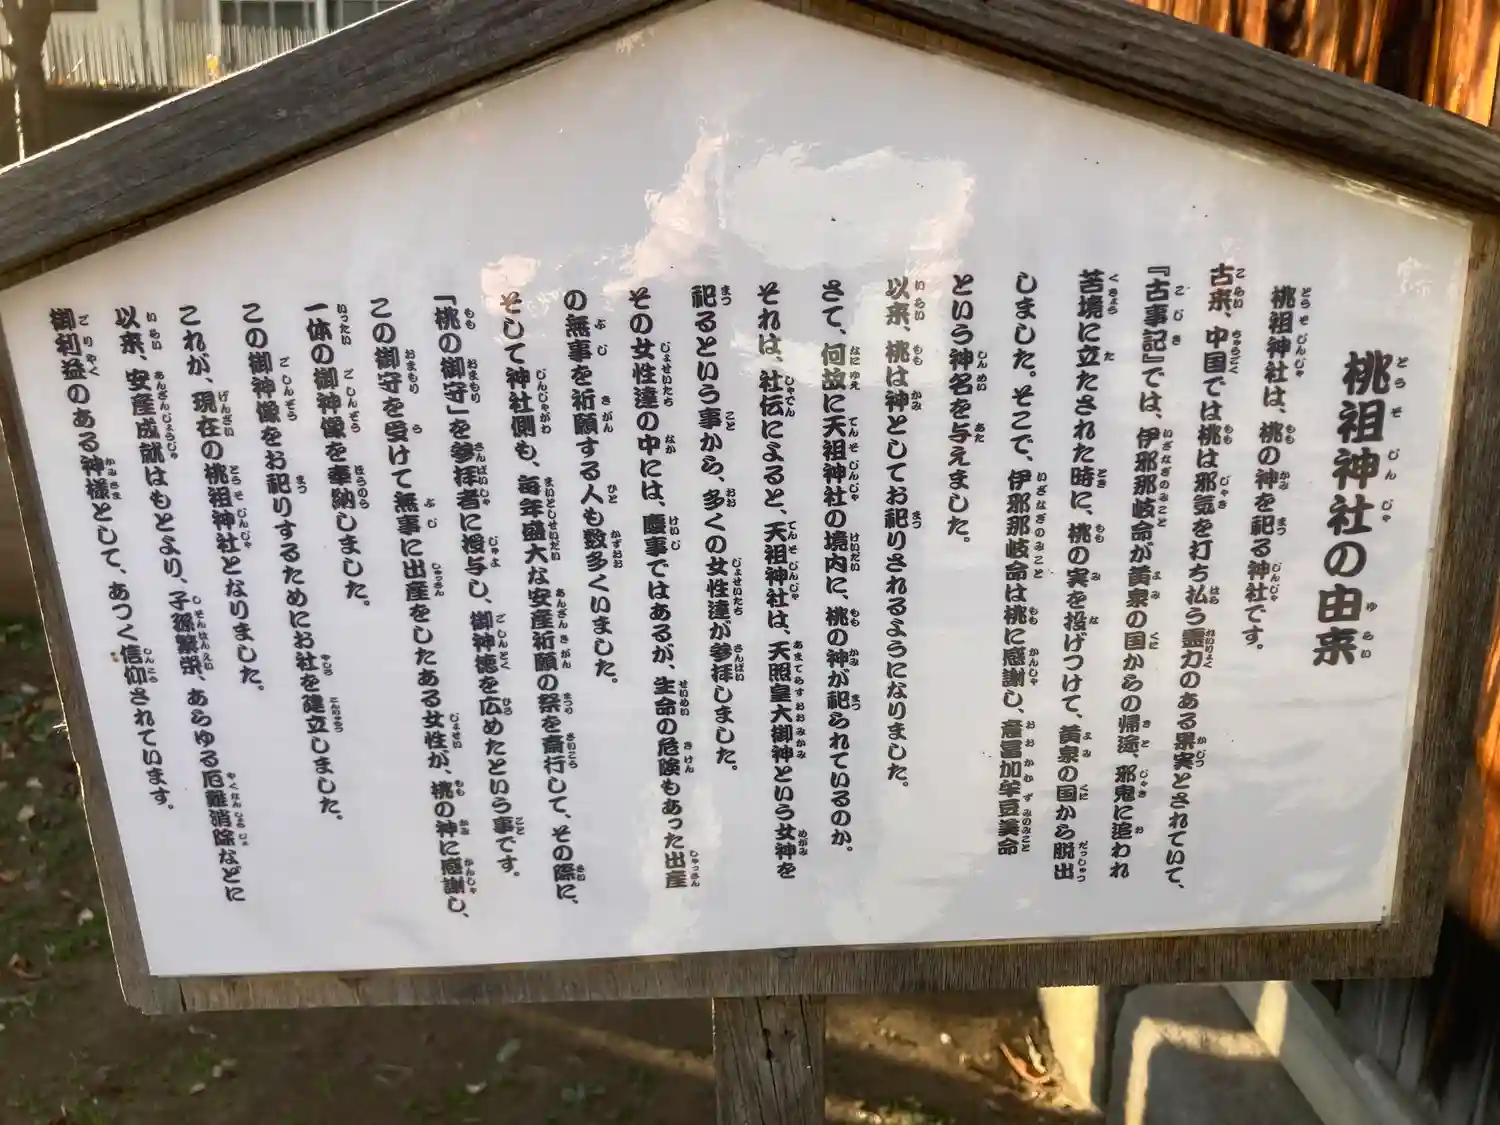 桃祖神社の由来
桃祖神社は、桃の神を祀る神社です。
古来、中国では桃は邪気を打ち払う霊力のある果実とされていて、
『古事記』では、伊邪那岐命が黄泉の国からの帰途、邪鬼に追われ
苦境に立たされた時に、桃の実を投げつけて、黄泉の国から脱出
しました。そこで、伊邪那岐命は桃に感謝し、意冨加牟豆美命
という神名を与えました。
以来、桃は神としてお祀りされるようになりました。
さて、何故に天祖神社の境内に、桃の神が祀られているのか。
それは、社伝によると、天祖神社は、天照皇大御神という女神を
祀るという事から、多くの女性達が参拝しました。
その女性達の中には、慶事ではあるが、生命の危険もあった出産
の無事を祈願する人も数多くいました。
そして神社側も、毎年盛大な安産祈願の祭を斎行して、その際に、
「桃の御守」を参拝者に授与し、御神徳を広めたという事です。
この御守を受けて無事に出産をしたある女性が、桃の神に感謝し、
一体の御神像を奉納しました。
この御神像をお祀りするためにお社を建立しました。
これが、現在の桃祖神社となりました。
以来、安産成就はもとより、子孫繁栄、あらゆる厄難消除などに
御利益のある神様として、あつく信仰されています。